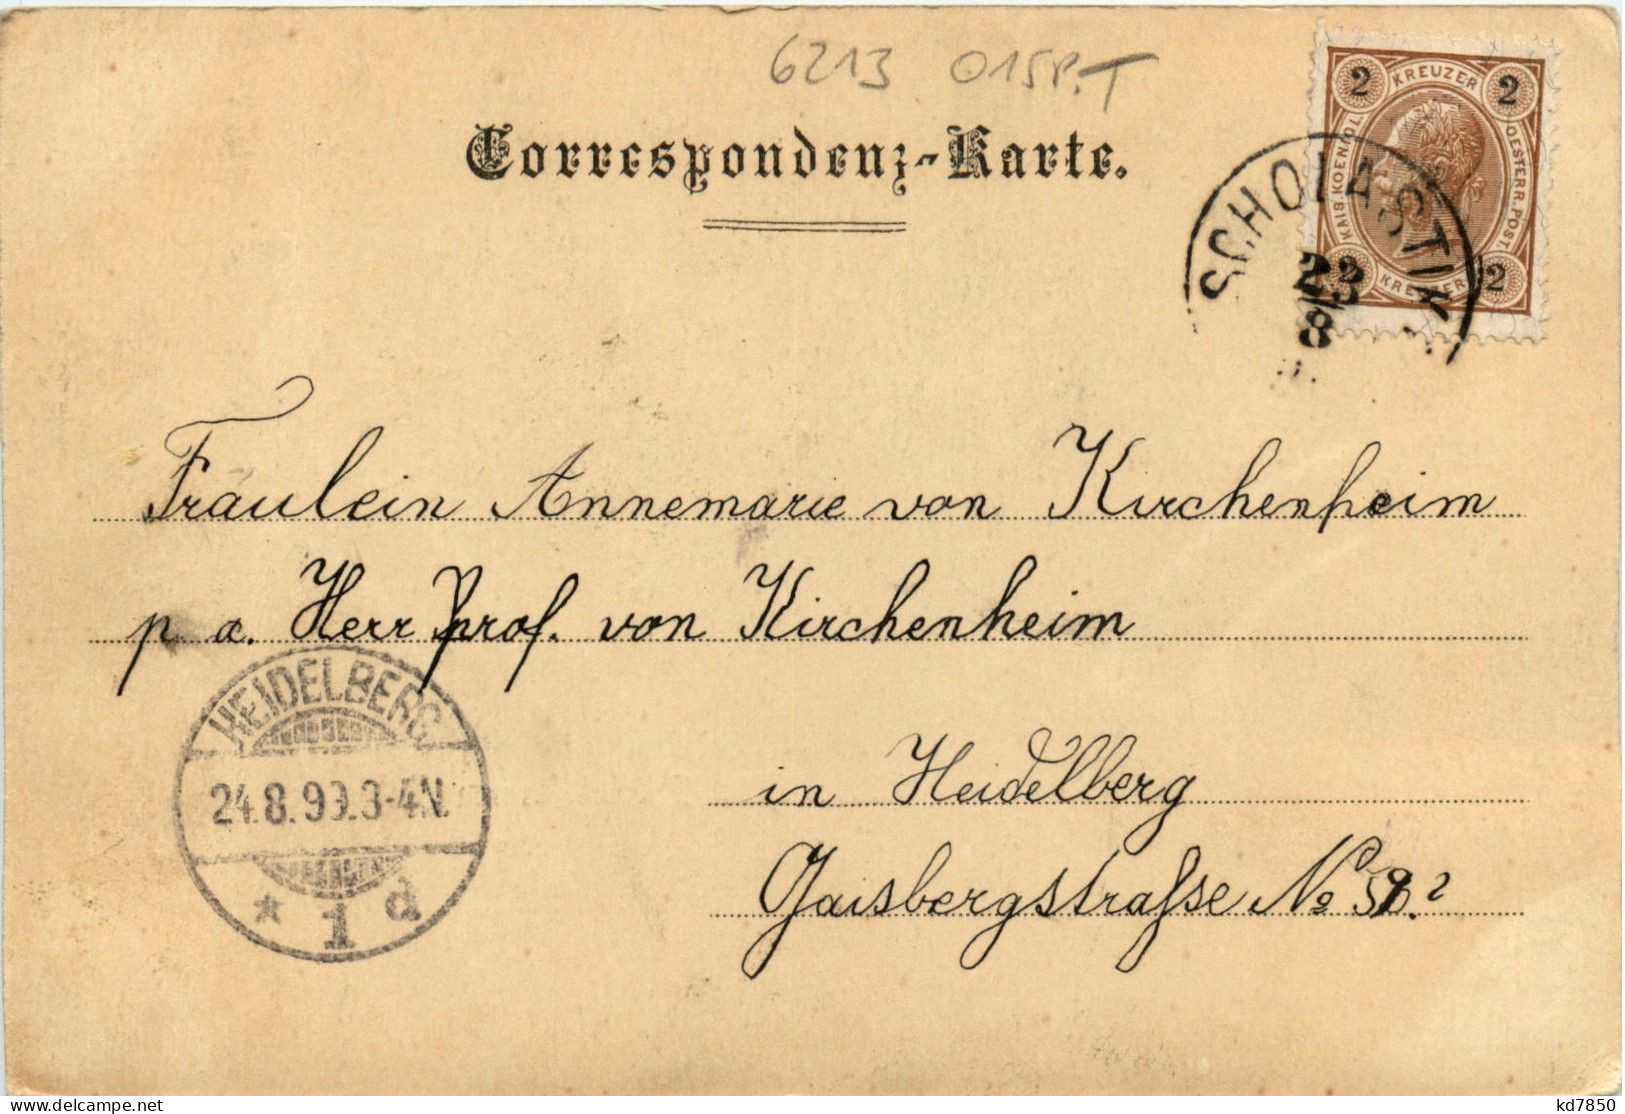 6213 015P.T
Correspondenz-Karte.
2 KREUZER 2
KAIS. KOENIGL. OESTERR. POST.
KREUZER 2
SCHOLASTIK
23
8
Fräulein Annemarie von Kirchenheim
p. a. Herr Prof. von Kirchenheim
HEIDELBERG
24.8.99.3-4N.
* 1 d
in Heidelberg
Gaisbergstraſse No
kd7850